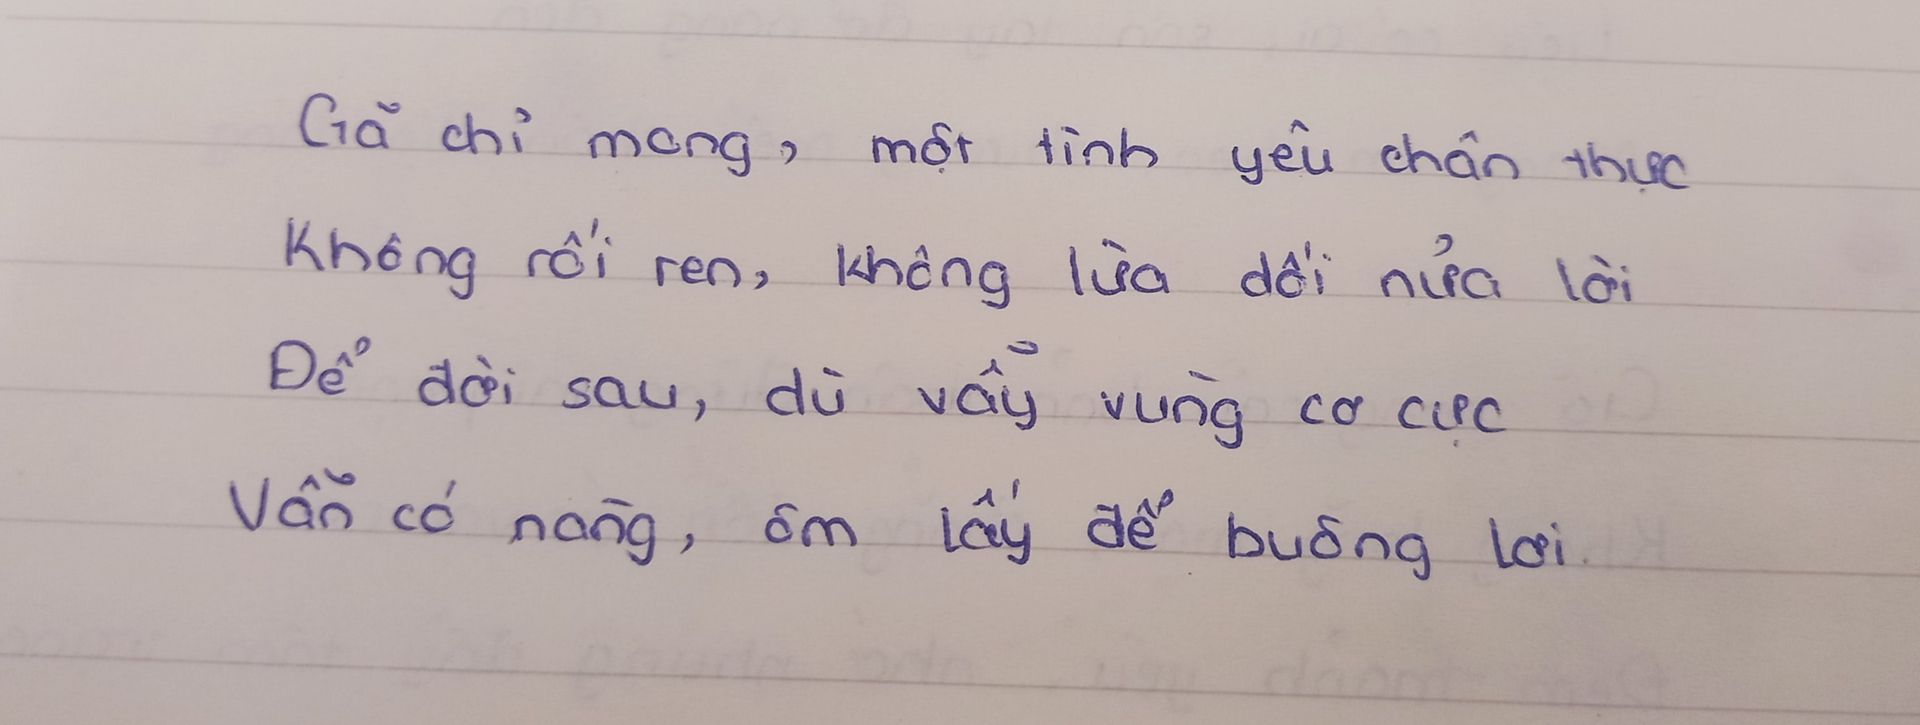 Gã chỉ mong, một tình yêu chân thực
Không rối ren, không lừa dối nửa lời
Để đời sau, dù vẫy vùng cơ cực
Vẫn có nàng, ôm lấy để buông lơi.